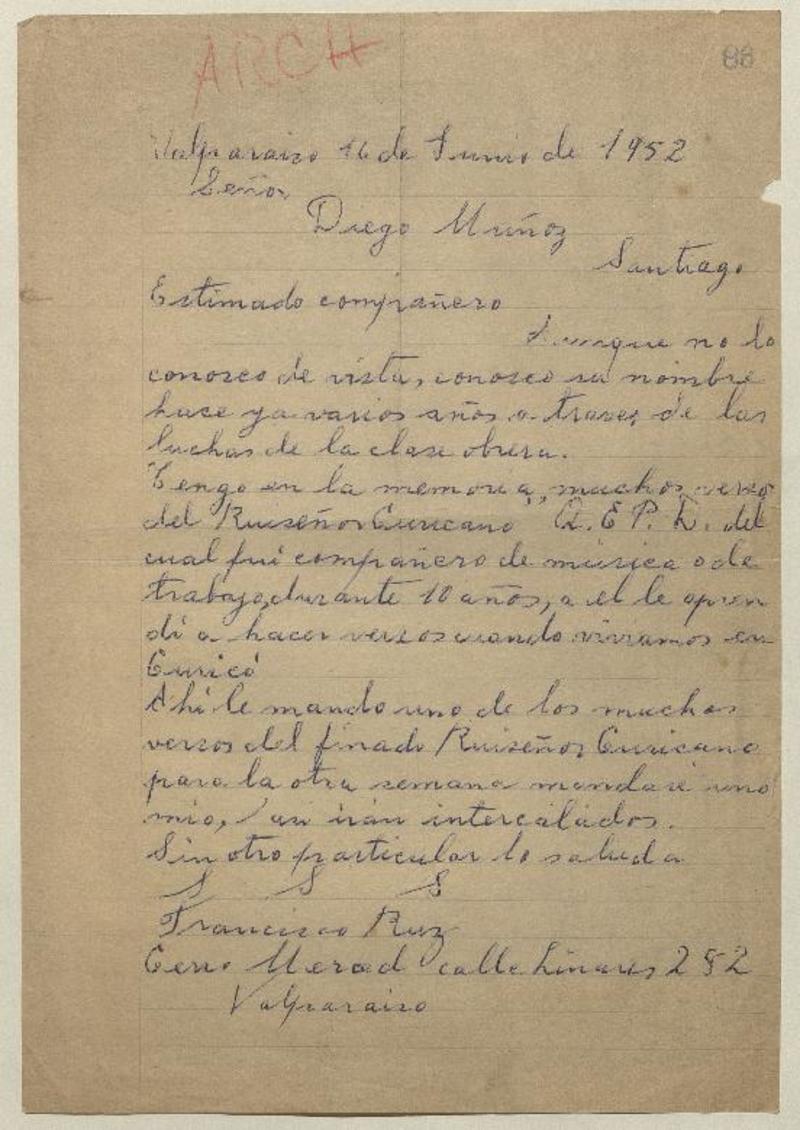 ARCH
88
Valparaiso 16 de Junio de 1952
Señor
Diego Muñoz
Santiago
Estimado compañero
Aunque no lo
conosco de vista, conosco su nombre
hase ya varios años a traves de las
luchas de la clase obrera.
Tengo en la memoria, muchos verso
del Ruiseñor Curicano Q. E. P. D. del
cual fui compañero de música o de
trabajo, durante 10 años, a el le apren
di a hacer versos cuando viviamos en
Curicó
Ahi le mando uno de los muchos
versos del finado Ruiseñor Curicano
para la otra semana mandaré uno
mio, asi irán intercalados.
Sin otro particular lo saluda
S S S
Francisco Ruz
Cerro Merced calle Linares 282
Valparaiso